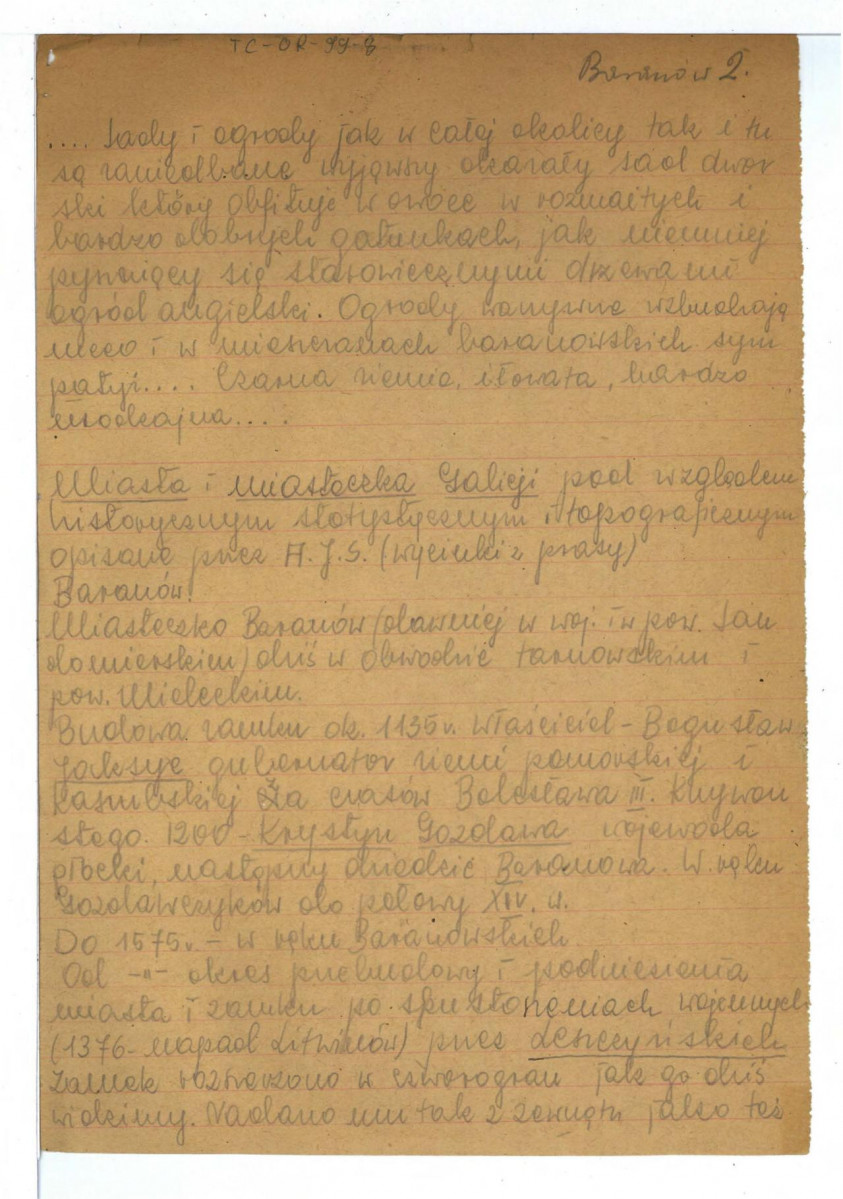 TC-OR-99-8
Baranów 2.
.... Sady i ogrody jak w całej okolicy tak i tu
są zaniedbane wyjąwszy okazały sad dwor
ski który obfituje w owoce w rozmaitych i
bardzo dobrych gatunkach, jak niemniej
pyszniący się starowiecznymi drzewami
ogród angielski. Ogrody warzywne wzbudzają
nieco i w mieszczanach baranowskich sym
patyi.... Czarna ziemia, iłowata, bardzo
urodzajna....
Miasta i miasteczka Galicji pod względem
historycznym statystycznym i topograficznym
opisane przez H.J.S. (wycinki z prasy)
Baranów.
Miasteczko Baranów (dawniej w woj. i w pow. San
domierskiem) dziś w obwodzie tarnowskim i
pow. Mieleckim.
Budowa zamku ok. 1135 r. właściciel - Bogusław
Jaksyc gubernator ziemi pomorskiej i
kaszubskiej Za czasów Bolesława III. Krzywou
stego. 1200 - Krystyn Gozdawa wojewoda
płocki, następny dziedzic Baranowa. W ręku
Gozdawczyków do połowy XIV. w.
Do 1575 r. - w ręku Baranowskich
Od -"- okres przebudowy i podniesienia
miasta i zamku po spustoszeniach wojennych
(1376 - napad Litwinów) przez Leszczyńskich
Zamek rozszerzono w czworogran jak go dziś
widzimy. Nadano mu tak z zewnątrz jako też